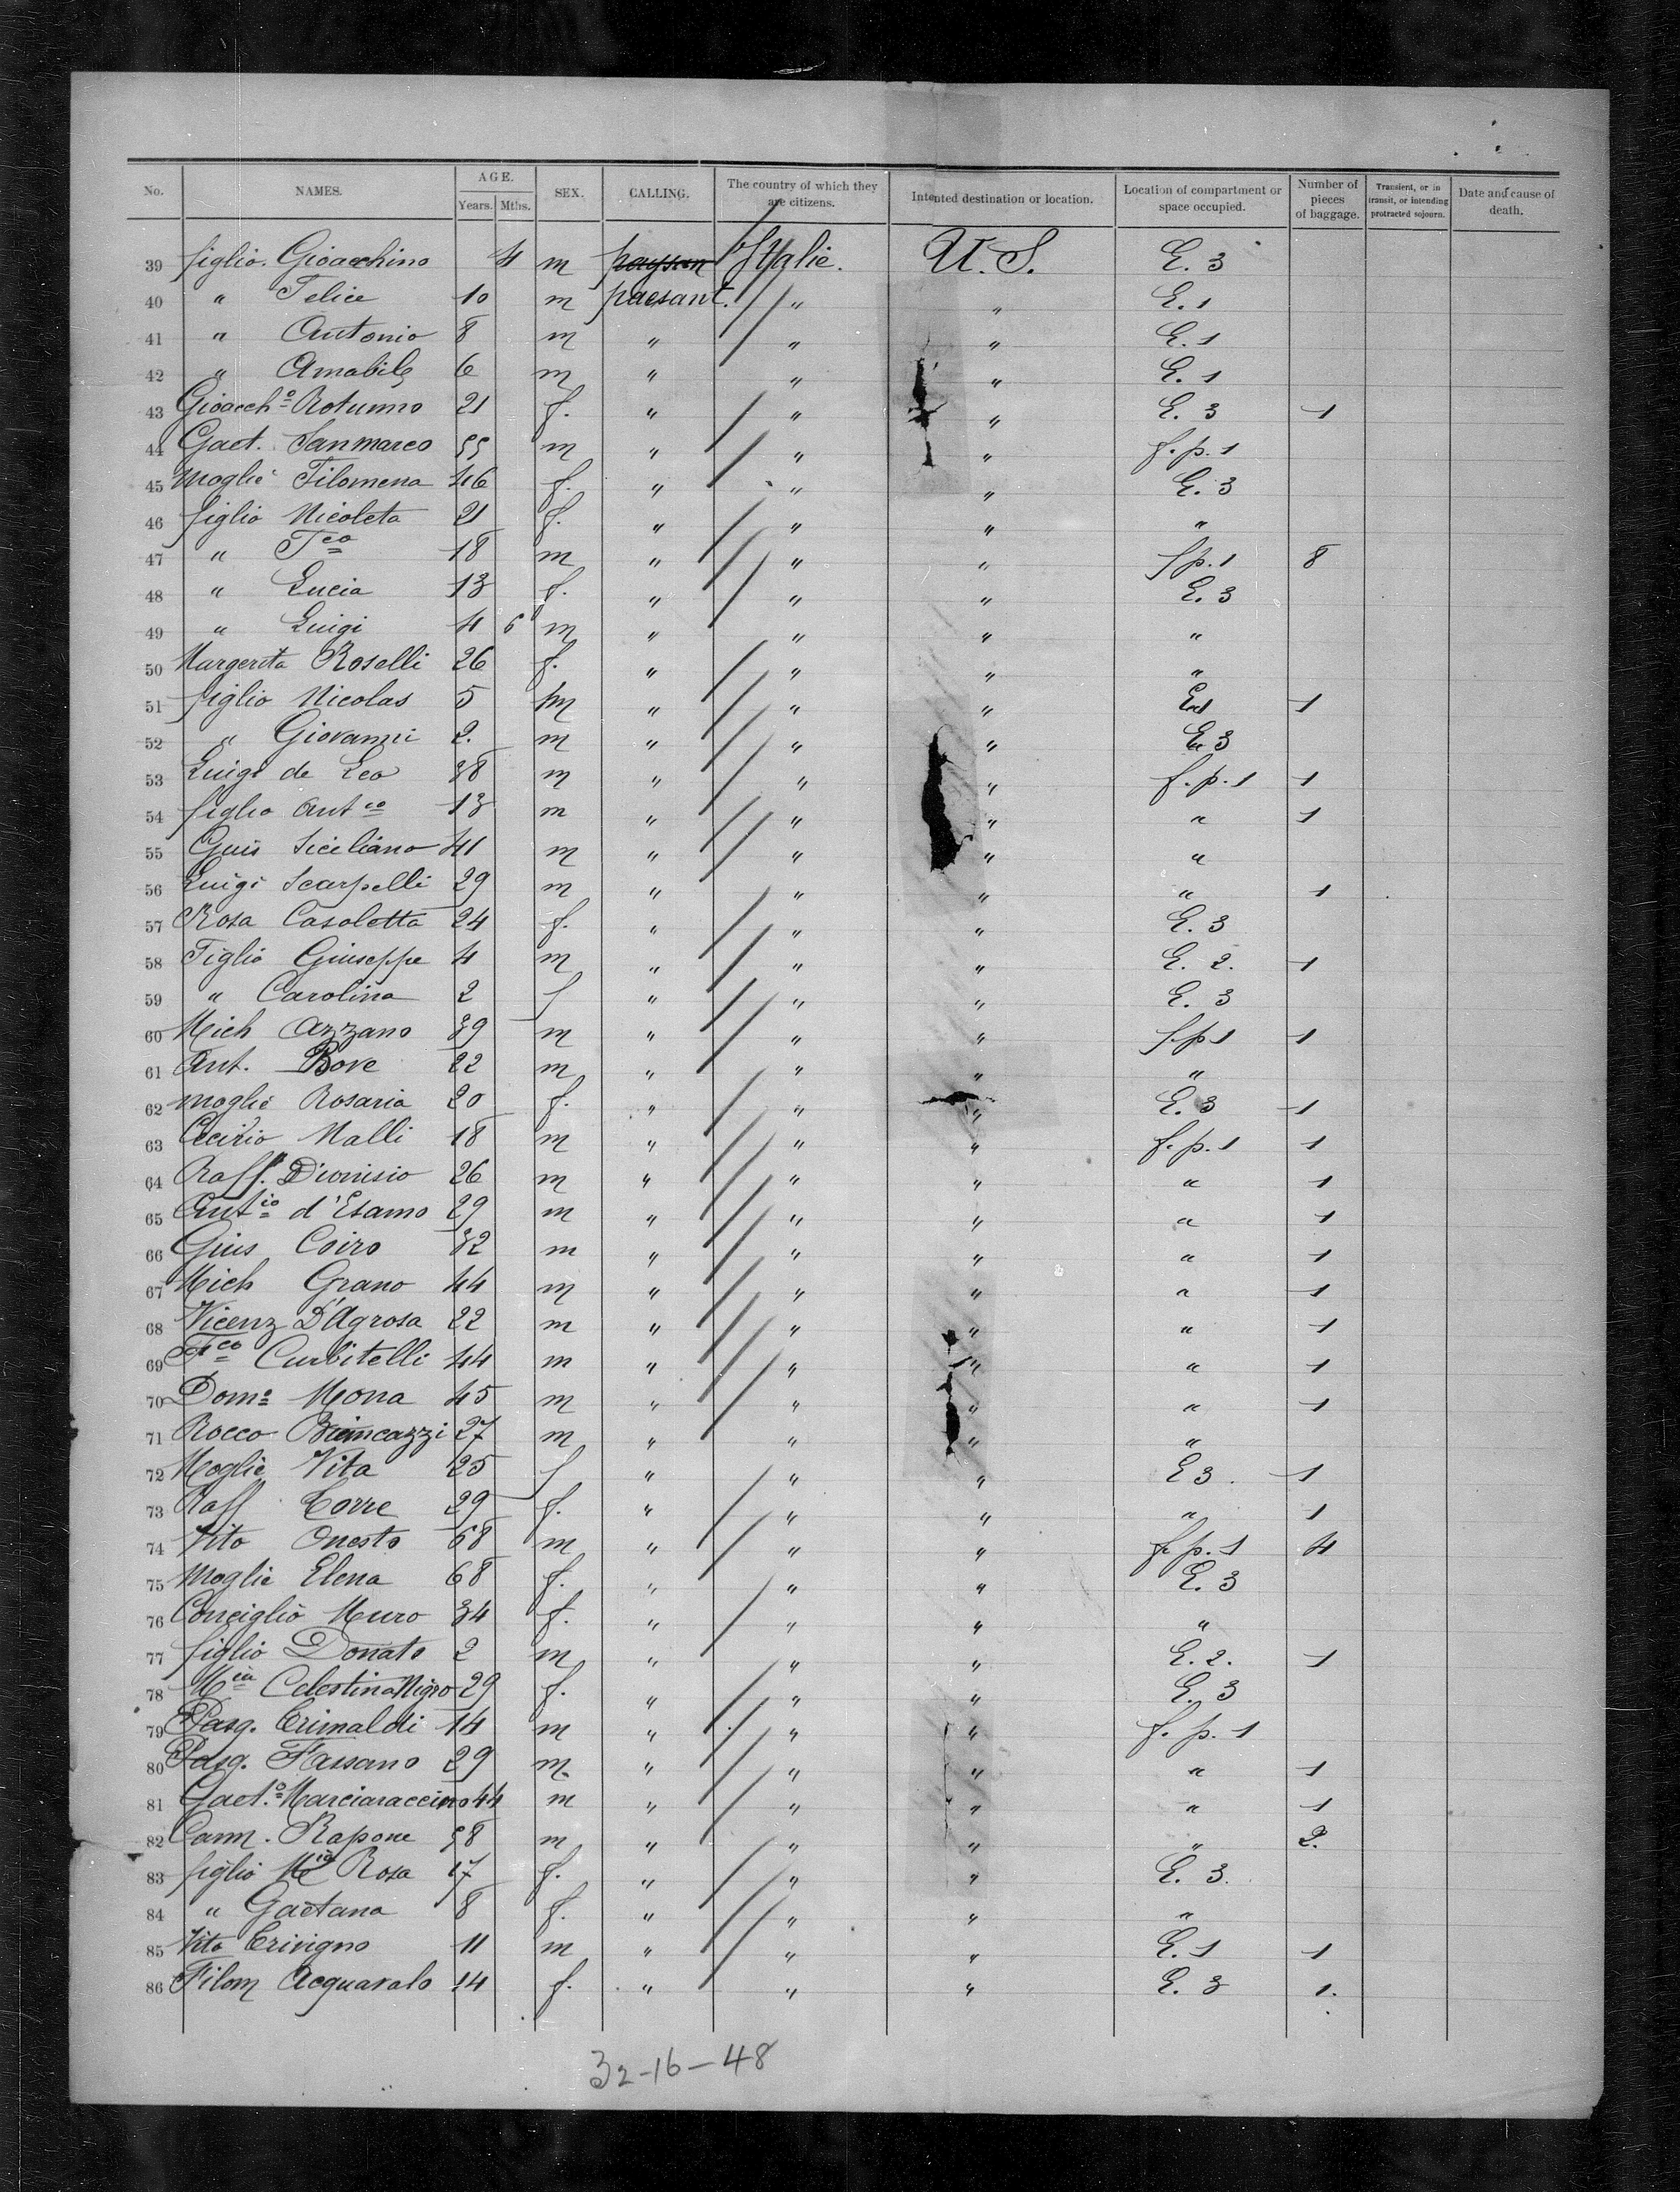 No. NAMES. AGE. Years. Mths. SEX. CALLING. The country of which they are citizens. Intented destination or location. Location of compartment or space occupied. Number of pieces of baggage. Transient, or in transit, or intending protracted sojourn. Date and cause of death.
39 figlio. Gioacchino 4 m paysan Italie. U. S. E. 3
40 " Felice 10 m paesant. " " E. 1
41 " Antonio 8 m " " " E. 1
42 " Amabile 6 m " " " E. 1
43 Gioacch.o Rotunno 21 f. " " " E. 3 1
44 Gaet. Sanmarco 55 m " " " f. p. 1
45 Moglie Filomena 46 f. " " " E. 3
46 figlio Nicoleta 21 f. " " " "
47 " Fco 18 m " " " f p. 1 8
48 " Lucia 13 f. " " " E. 3
49 " Luigi 4 6 m " " " "
50 Margerita Roselli 26 f. " " " "
51 figlio Nicolas 5 m " " " E. 1 1
52 " Giovanni 2. m " " " E. 3
53 Luigi de Leo 38 m " " " f. p. 1 1
54 figlio Antco 13 m " " " " 1
55 Guis Siciliano 41 m " " " "
56 Luigi Scarpelli 29 m " " " " 1
57 Rosa Casoletta 24 f. " " " E. 3
58 Figlio Giuseppe 4 m " " " E. 2. 1
59 " Carolina 2 f " " " E. 3
60 Mich Azzano 39 m " " " f. p 1 1
61 Ant. Bove 22 m " " " "
62 moglie Rosaria 20 f. " " " E. 3 1
63 Cecirio Malli 18 m " " " f. p. 1 1
64 Raff. Dionisio 26 m " " " " 1
65 Antio d'Esamo 29 m " " " " 1
66 Gius Coiro 32 m " " " " 1
67 Mich Grano 44 m " " " " 1
68 Vicenz D'Agrosa 22 m " " " " 1
69 Fco Curbitelli 44 m " " " " 1
70 Domo Mona 45 m " " " " 1
71 Rocco 27 m " " " "
72 Moglie Vita 25 f " " " E 3. 1
73 Raff Torre 29 f. " " " " 1
74 Vito Onesto 68 m " " " f. p. 1 4
75 Moglie Elena 68 f. " " " E. 3
76 Conciglio Muro 34 f. " " " "
77 figlio Donato 2 m " " " E. 2. 1
78 Mia Celestina Nigro 29 f. " " " E. 3
79 Pasq. Crimaldi 14 m " " " f. p. 1
80 Pasq. Fassano 29 m. " " " " 1
81 Gaet.o Marciaraccino 44 m " " " " 1
82 Carm. Rapone 58 m " " " " 2.
83 figlio Mia Rosa 17 f. " " " E. 3.
84 " Gaetana 8 f. " " " "
85 Vito Crivigno 11 m " " " E. 1 1
86 Filom Acquavalo 14 f. " " " E. 3 1.
32-16-48